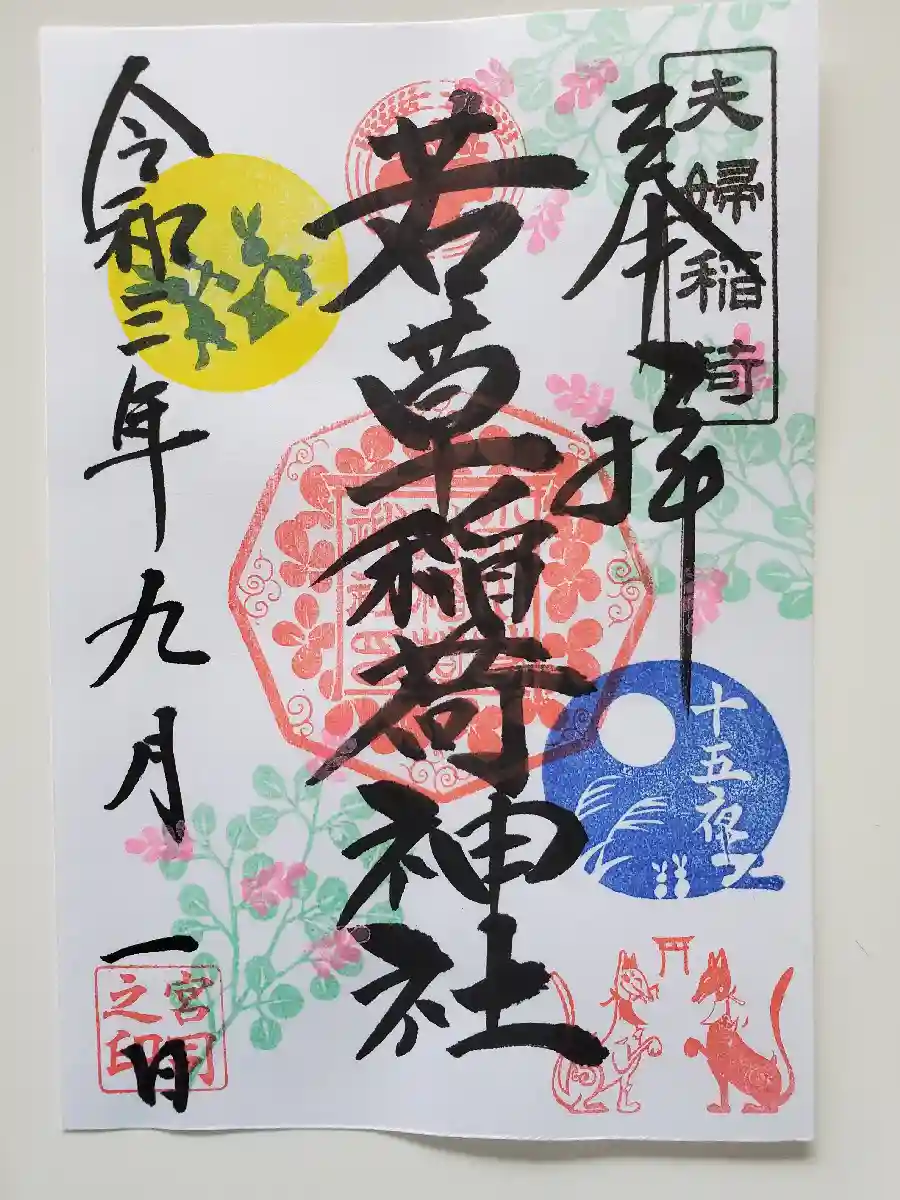 夫婦稲荷
奉拝
若草稲荷神社
十五夜
令和三年九月一日
宮司
之印